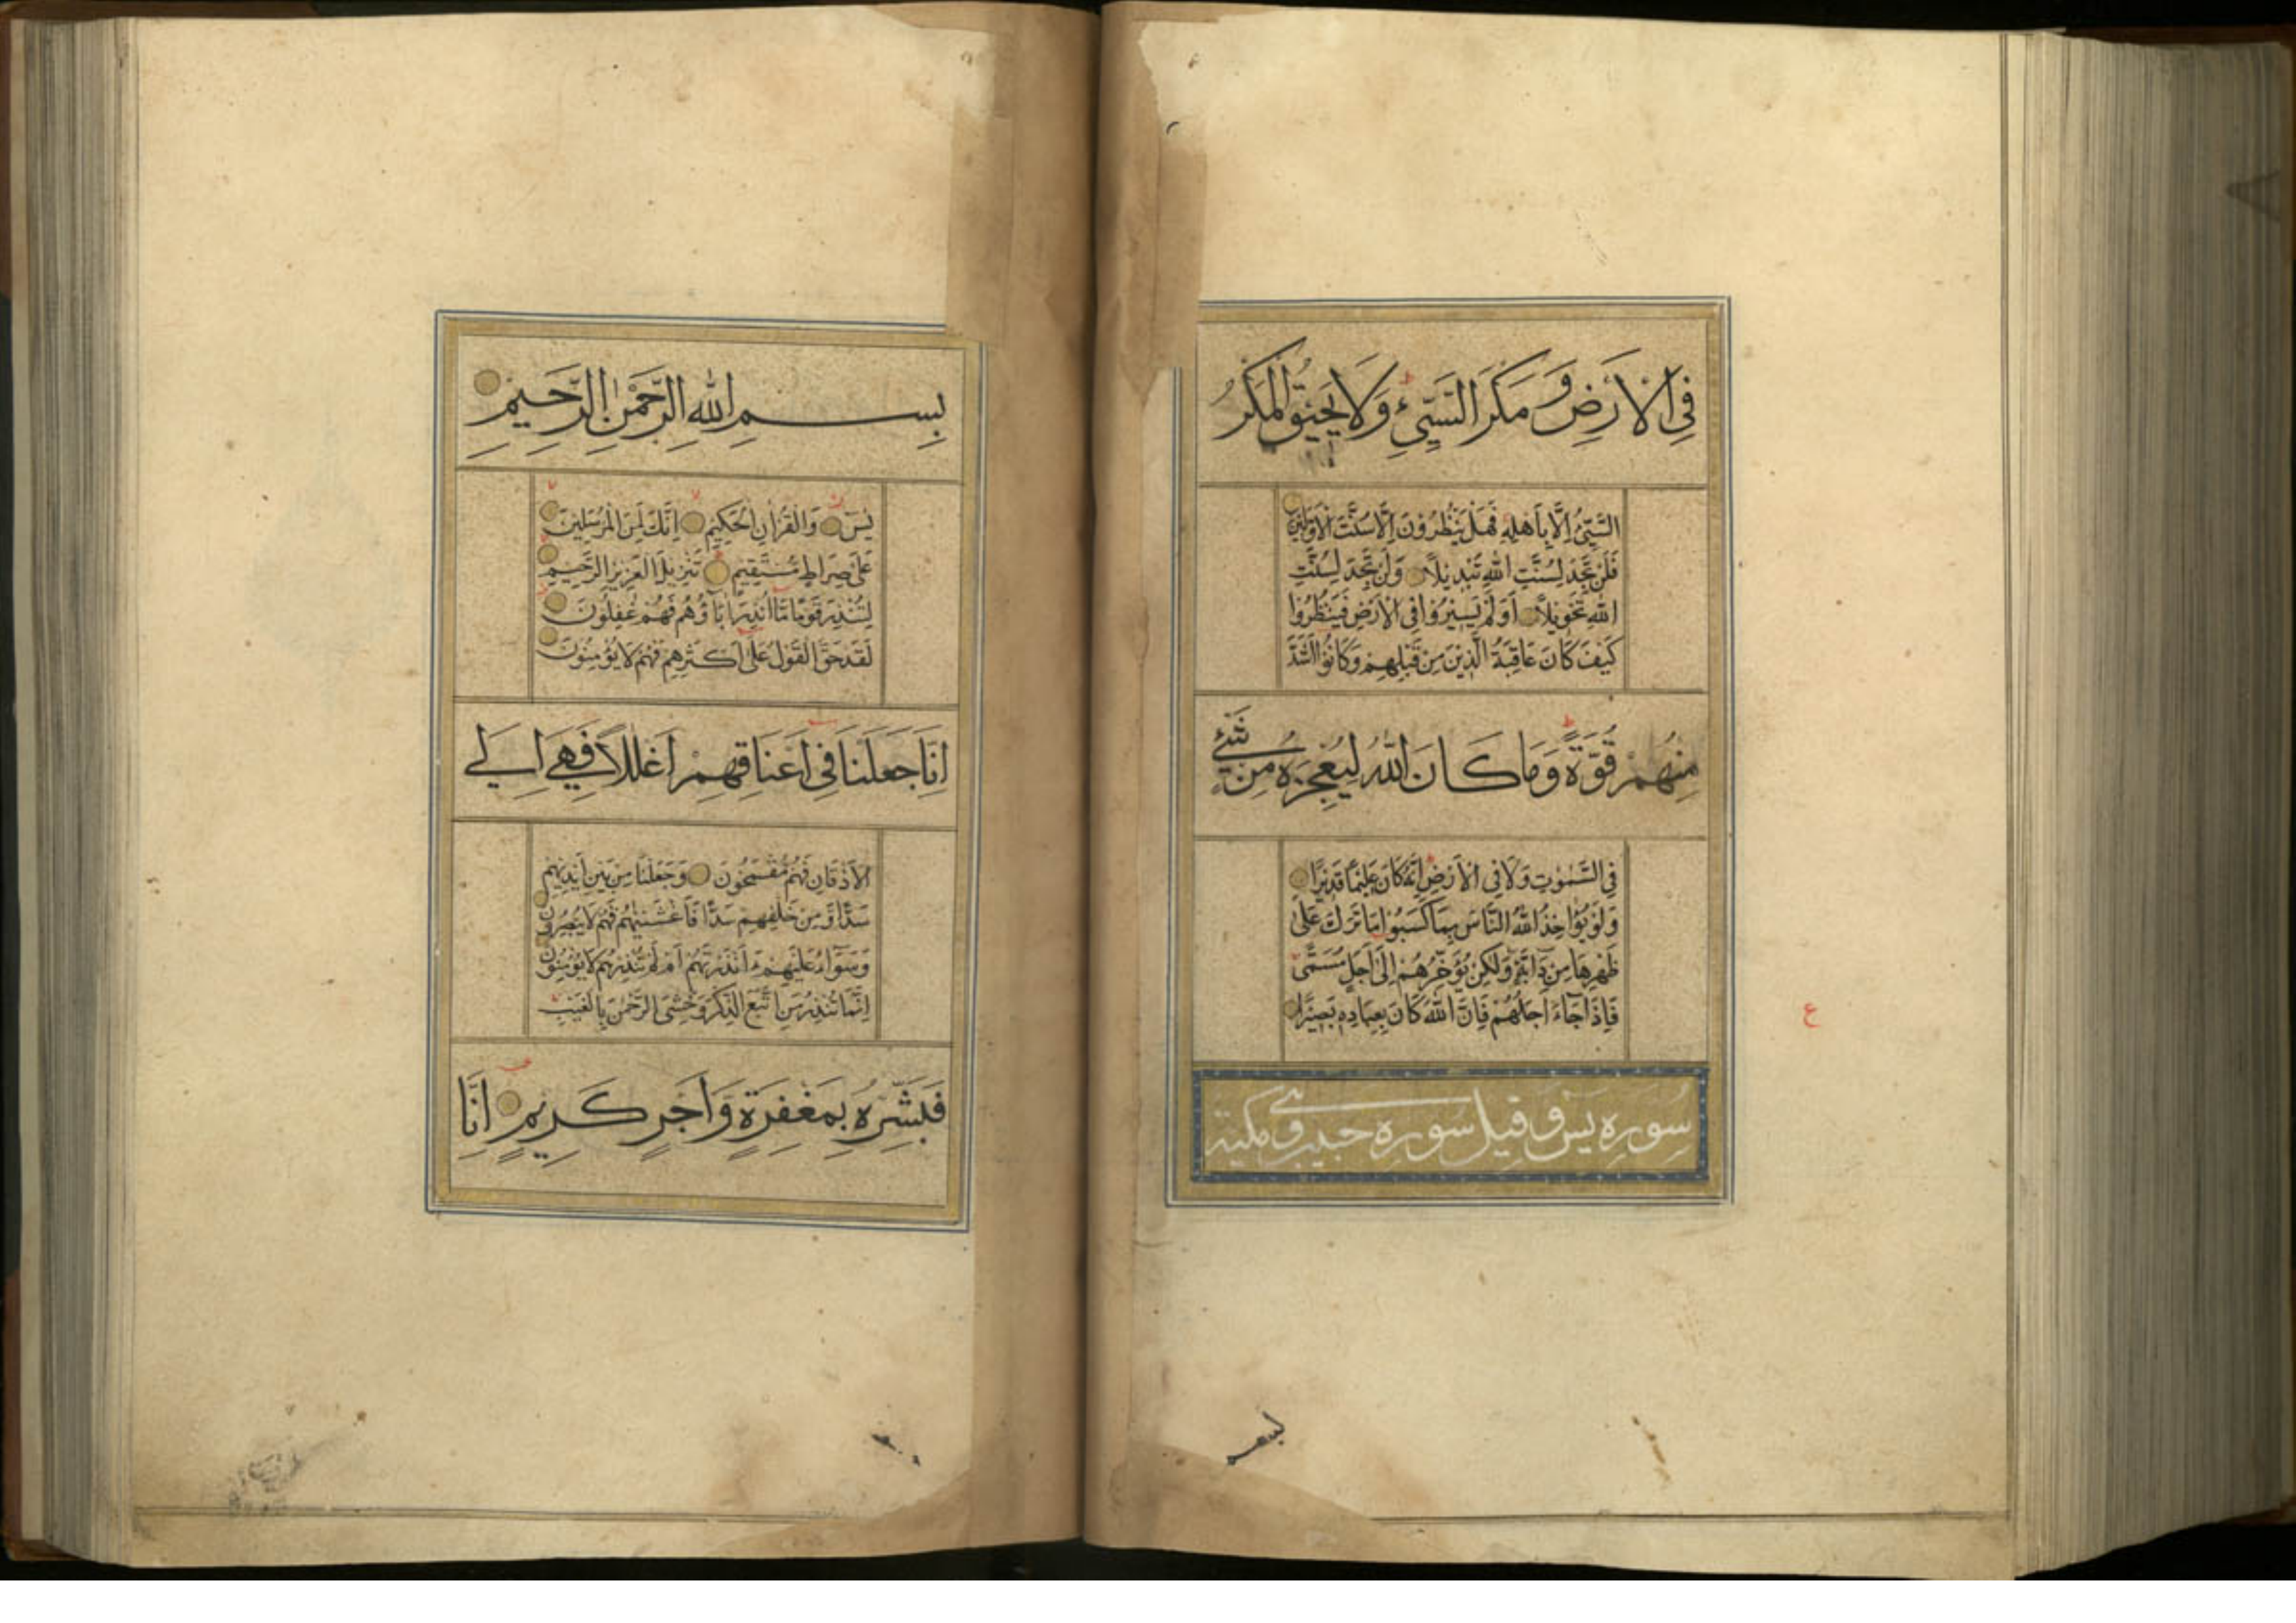 فِي الْاَرْضِ وَمَكْرَ السَّيِّئِ وَلَا يَحِيْقُ الْمَكْرُ
السَّيِّئُ اِلَّا بِاَهْلِهٖ فَهَلْ يَنْظُرُوْنَ اِلَّا سُنَّتَ الْاَوَّلِيْنَ
فَلَنْ تَجِدَ لِسُنَّتِ اللّٰهِ تَبْدِيْلًا وَلَنْ تَجِدَ لِسُنَّتِ
اللّٰهِ تَحْوِيْلًا اَوَلَمْ يَسِيْرُوْا فِي الْاَرْضِ فَيَنْظُرُوْا
كَيْفَ كَانَ عَاقِبَةُ الَّذِيْنَ مِنْ قَبْلِهِمْ وَكَانُوْا اَشَدَّ
مِنْهُمْ قُوَّةً وَمَا كَانَ اللّٰهُ لِيُعْجِزَهٗ مِنْ شَيْءٍ
فِي السَّمٰوٰتِ وَلَا فِي الْاَرْضِ اِنَّهٗ كَانَ عَلِيْمًا قَدِيْرًا
وَلَوْ يُؤَاخِذُ اللّٰهُ النَّاسَ بِمَا كَسَبُوْا مَا تَرَكَ عَلٰى
ظَهْرِهَا مِنْ دَآبَّةٍ وَلٰكِنْ يُؤَخِّرُهُمْ اِلٰى اَجَلٍ مُسَمًّى
فَاِذَا جَآءَ اَجَلُهُمْ فَاِنَّ اللّٰهَ كَانَ بِعِبَادِهٖ بَصِيْرًا
ع
سورة يس وقيل سورة حبيب وهي مكية
بسم
بِسْمِ اللّٰهِ الرَّحْمٰنِ الرَّحِيْمِ
يٰسٓ وَالْقُرْاٰنِ الْحَكِيْمِ اِنَّكَ لَمِنَ الْمُرْسَلِيْنَ
عَلٰى صِرَاطٍ مُسْتَقِيْمٍ تَنْزِيْلَ الْعَزِيْزِ الرَّحِيْمِ
لِتُنْذِرَ قَوْمًا مَا اُنْذِرَ اٰبَآؤُهُمْ فَهُمْ غٰفِلُوْنَ
لَقَدْ حَقَّ الْقَوْلُ عَلٰى اَكْثَرِهِمْ فَهُمْ لَا يُؤْمِنُوْنَ
اِنَّا جَعَلْنَا فِيْ اَعْنَاقِهِمْ اَغْلٰلًا فَهِيَ اِلَى
الْاَذْقَانِ فَهُمْ مُقْمَحُوْنَ وَجَعَلْنَا مِنْ بَيْنِ اَيْدِيْهِمْ
سَدًّا وَمِنْ خَلْفِهِمْ سَدًّا فَاَغْشَيْنٰهُمْ فَهُمْ لَا يُبْصِرُوْنَ
وَسَوَآءٌ عَلَيْهِمْ ءَاَنْذَرْتَهُمْ اَمْ لَمْ تُنْذِرْهُمْ لَا يُؤْمِنُوْنَ
اِنَّمَا تُنْذِرُ مَنِ اتَّبَعَ الذِّكْرَ وَخَشِيَ الرَّحْمٰنَ بِالْغَيْبِ
فَبَشِّرْهُ بِمَغْفِرَةٍ وَاَجْرٍ كَرِيْمٍ اِنَّا